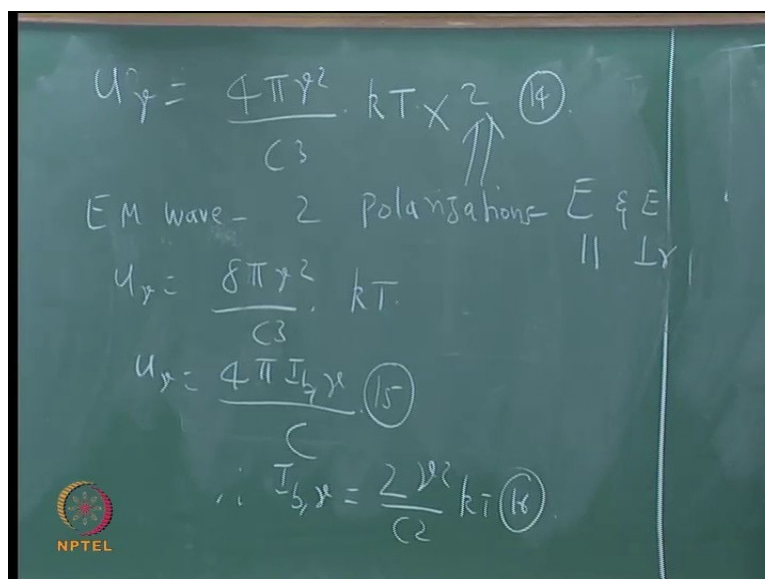 uν = 4πν²/c³ · kT × 2 (14).
EM wave - 2 polarisations - E & E
|| ⊥r
uν = 8πν²/c³ · kT.
uν = 4π I b,ν / c (15)
∴ I b,ν = 2ν²/c² kT (16).
NPTEL